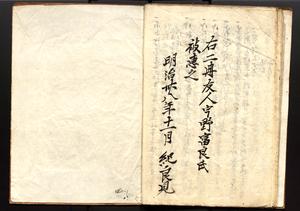 右二冊友人宇野富良氏
被恵之
明治廿八年十一月 紀良見